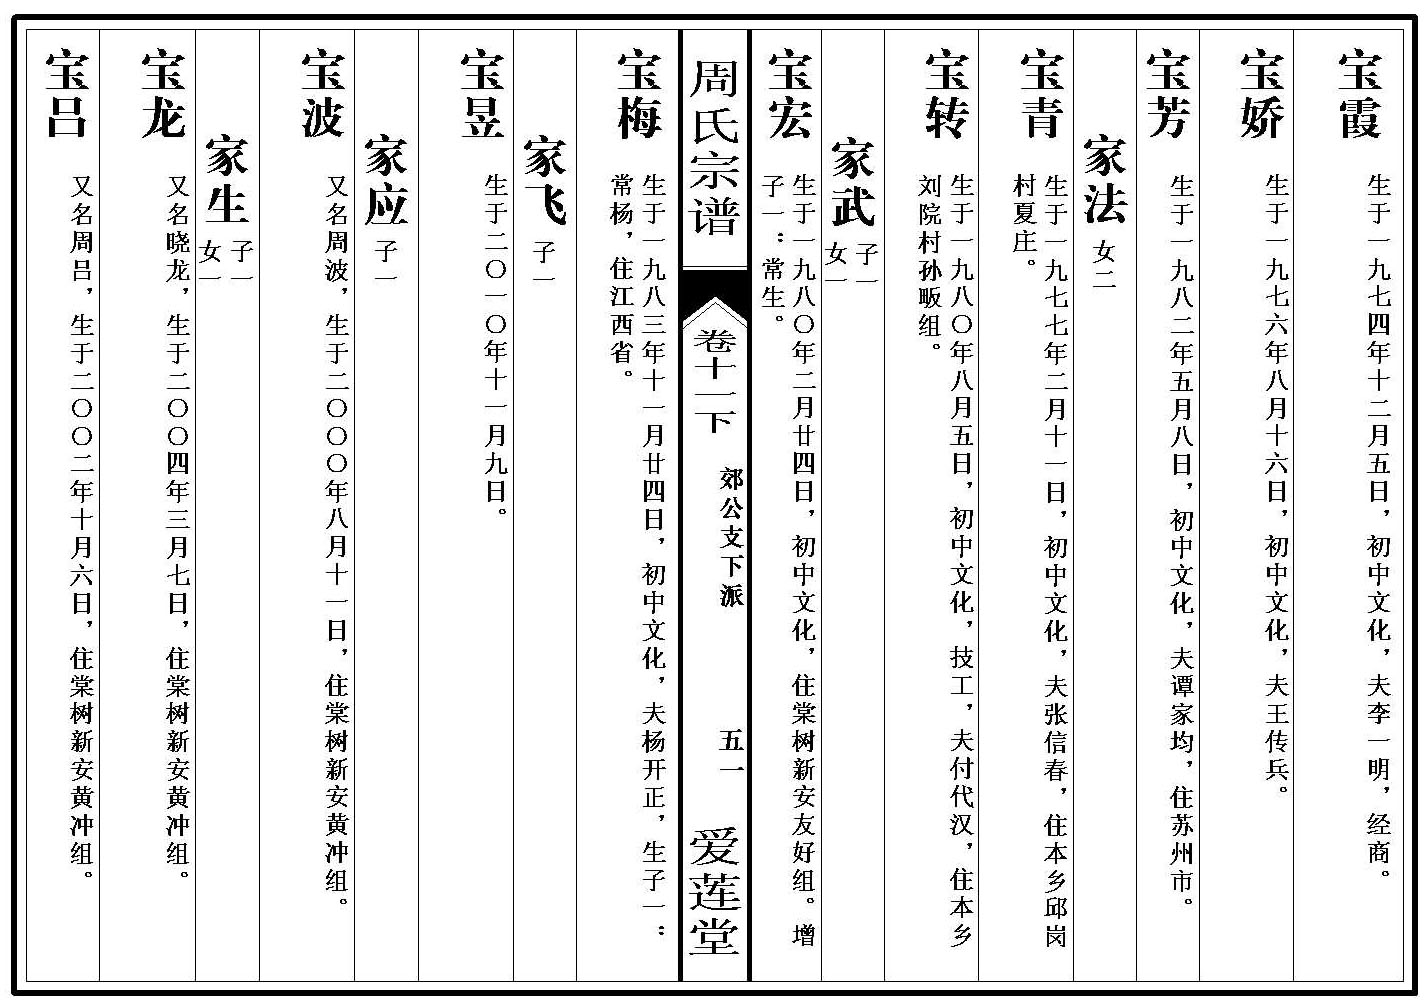 宝霞
生于一九七四年十二月五日，初中文化，夫李一明，经商。
宝娇
生于一九七六年八月十六日，初中文化，夫王传兵。
宝芳
生于一九八二年五月八日，初中文化，夫谭家均，住苏州市。
家法
女二
宝青
生于一九七七年二月十一日，初中文化，夫张信春，住本乡邱岗
村夏庄。
宝转
生于一九八〇年八月五日，初中文化，技工，夫付代汉，住本乡
刘院村孙畈组。
家武
子一
女一
宝宏
生于一九八〇年二月廿四日，初中文化，住棠树新安友好组。增
子一：常生。
周氏宗谱
卷十二下
郊公支下派
五一
爱莲堂
宝梅
生于一九八三年十一月廿四日，初中文化，夫杨开正，生子一：
常杨，住江西省。
家飞
子一
宝昱
生于二〇一〇年十一月九日。
家应
子一
宝波
又名周波，生于二〇〇〇年八月十一日，住棠树新安黄冲组。
家生
子一
女一
宝龙
又名晓龙，生于二〇〇四年三月七日，住棠树新安黄冲组。
宝吕
又名周吕，生于二〇〇二年十月六日，住棠树新安黄冲组。